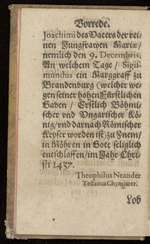 Vorrede.
Joachimi des Vatters der rei-
nen Jungfrawen Mariæ/
nemlich den 9. Decembris,
An welchem Tage / Sigis-
mundus ein Marggraff zu
Brandenburg (welcher we-
gen seiner hohen Fürstlichen
Gaben / Erstlich Böhmi-
scher vnd Ungarischer Kö-
nig/ vnd darnach Römischer
Keyser worden ist/ zu Znem/
in Mähren in Gott seliglich
entschlaffen/ im Jahr Chri-
sti 1437.
Theophilus Neander
Lob